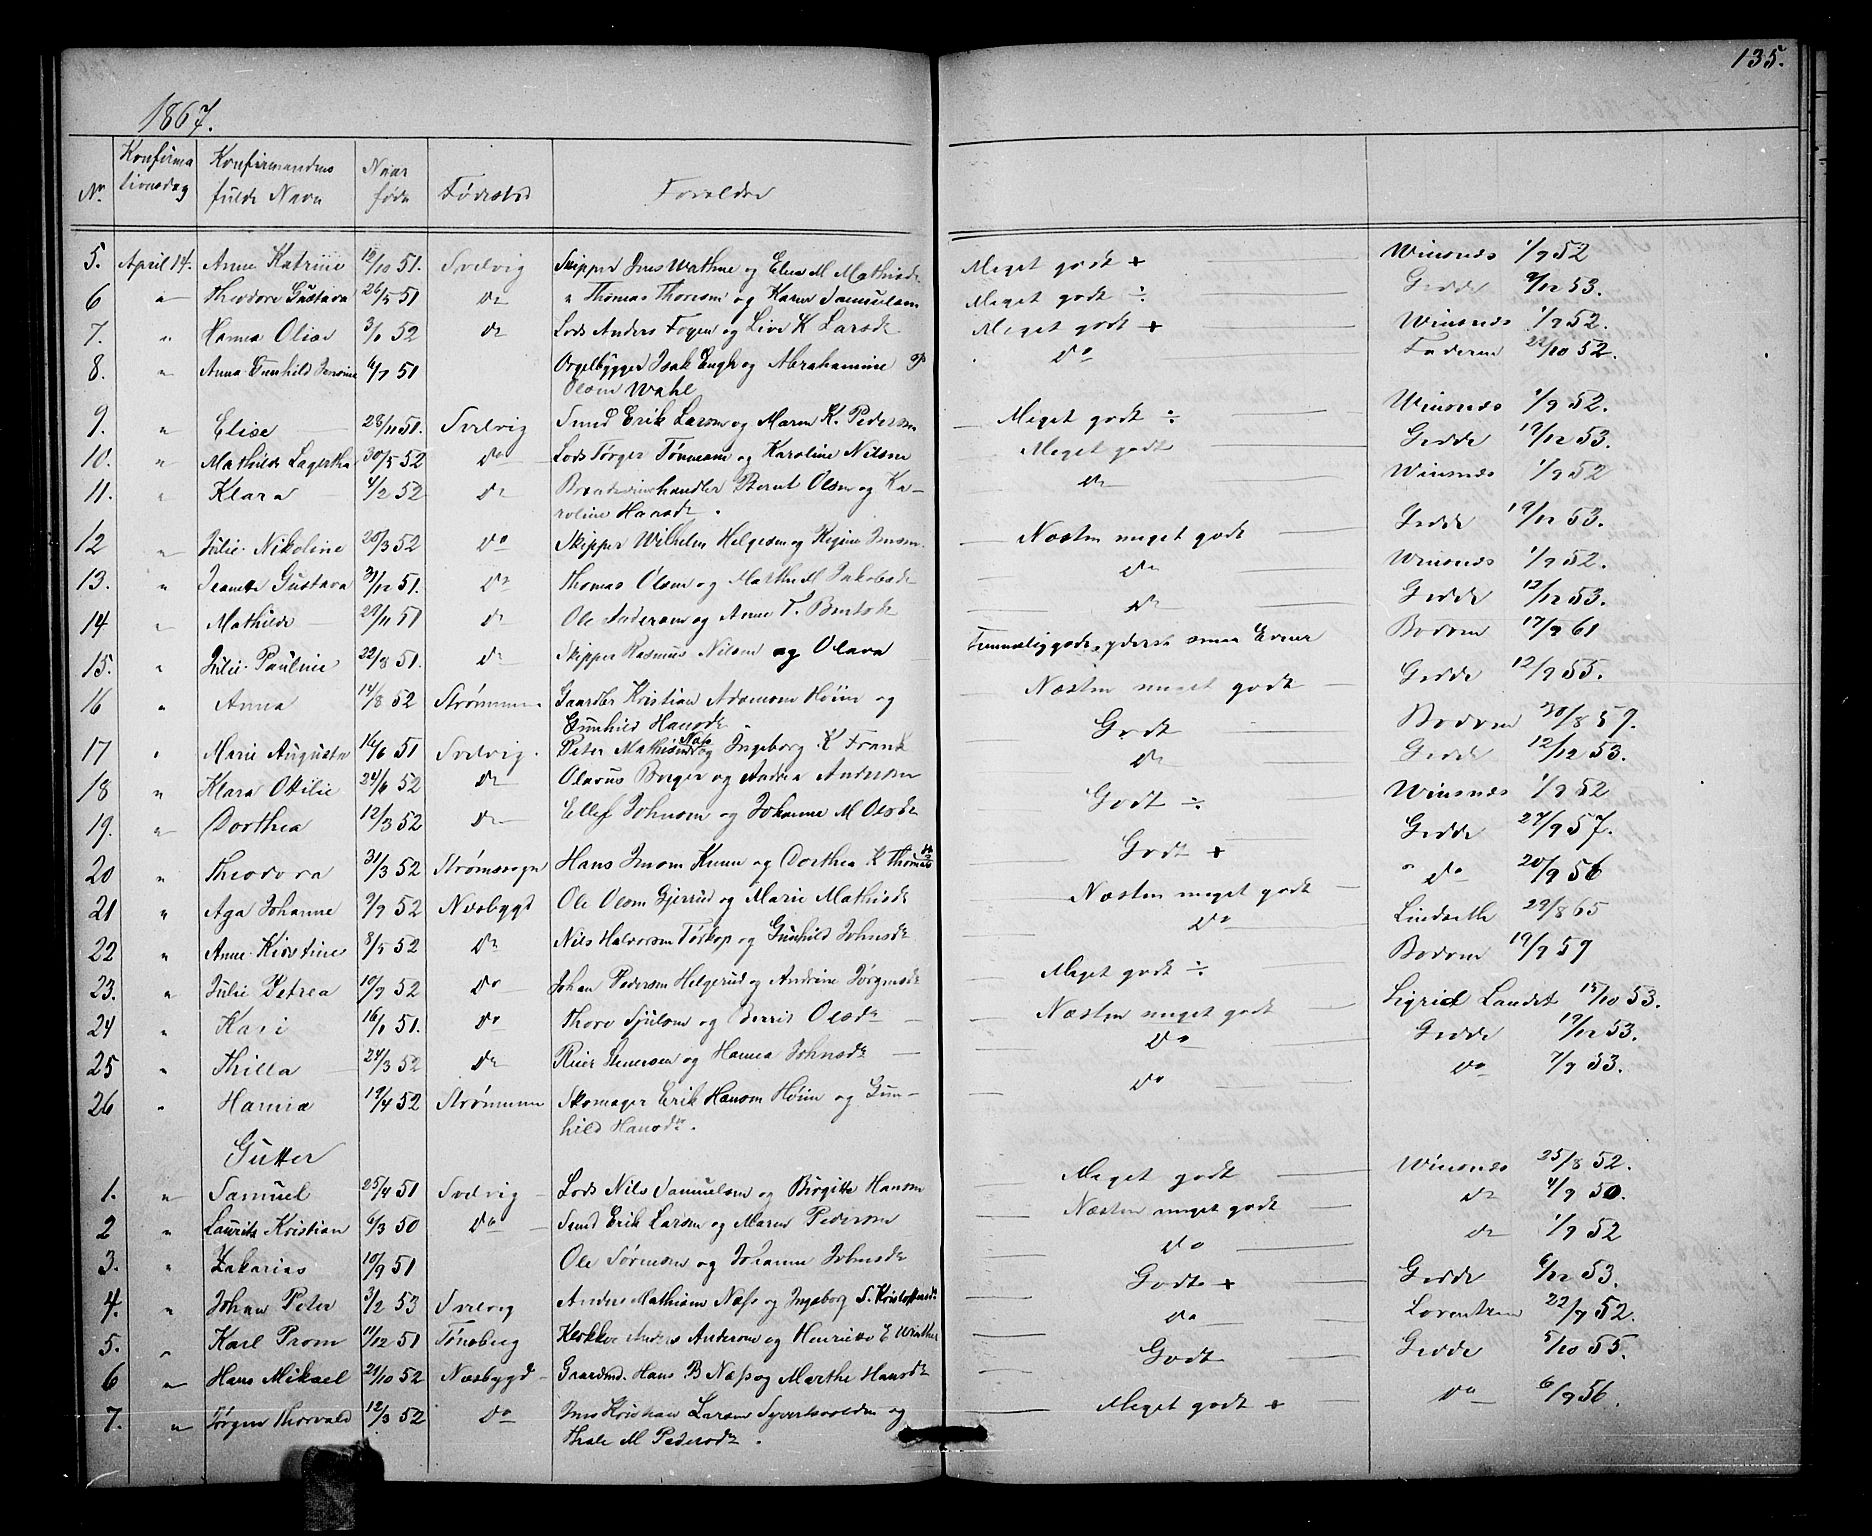 135.
1867.
No. Konfirmationsdag Konfirmandens fulde Navn Naar født Fødested Forældre
5. April 14. Anne Katrine 12/10 51. Svelvig Skipper Jens Wathne og Elen M Mathisdr Meget godt + Winsnes 1/9 52
6 " Theodore Gustava 26/5 51 do " Thomas Thoresen og Karen Samuelsen Meget godt ÷ Gedde 9/12 53.
7. " Hanna Olise 3/1 52 do Lods Anders Fogen og Live K Larsdr Meget godt + Winsnes 1/9 52.
8. " Anna Gunhild 6/7 51 Orgelbygger Isak Engh og Abrahamine do Faderen 22/10 52.
Olsen Wahl
9. " Elise 28/11 51. Svelvig Smed Erik Larsen og Maren K. Pedersen Meget godt ÷ Winsnes 1/9 52.
10. " Mathilde Lagertha 30/5 52 do Lods Tørger Tønnesen og Karoline Nilsen Meget godt Gedde 19/12 53.
11. " Klara 4/2 52 do Brændevinshandler Bernt Olsen og Ka- do Winsnes 1/9 52
roline Hansdr.
12 " Julie Nikoline 20/3 52 do Skipper Wilhelm Helgesen og Regine Jensen Næsten meget godt Gedde 19/12 53.
13. " Gustava 31/12 51. do Thomas Olsen og Marthe M Jakobsdr do Winsnes 1/9 52.
14 " Mathilde 29/11 51 do Ole Andersen og Anne T. Berntsdr do Gedde 12/12 53.
15. " Julie Pauline 22/8 51. do Skipper Rasmus Nilsen og Olava Temmelig godt, yderst smaa Evner Bodom 17/9 61
16 " Anna 14/8 52 Strømmen Gaardbr Kristian Adamsen Høien og Næsten meget godt Gedde 12/9 55.
Gunhild Hansdr.
17 " Marie Augusta 16/6 51 Svelvig. Peter Mathisen Næs og Ingeborg K Frank Godt Bodom 30/8 59.
18 " Klara Ottilie 24/6 52 do Olavus Borger og Andrea Andersen do Gedde 12/12 53.
19. " Dorthea 12/3 52 do Ellef Johnsen og Johanne M Olsdr Godt ÷ Winsnes 1/9 52
20 " Theodora 31/3 52 Strømsogn Hans Jensen og Dorthea K Thomasdr Godt + Gedde 27/9 57.
21 " Aga Johanne 9/9 52 Næsbygd Ole Olsen Gjerrud og Marie Mathisdr Næsten meget godt " do 20/9 56
22 " Anne Kirstine 8/5 52 do Nils Halvorsen Torkop og Gunhild Johnsdr do Lindseth 29/8 65
23. " Julie Petrea 10/9 52 do Johan Pedersen Helgerud og Andrine Jørgensdr Meget godt ÷ Bodom 19/9 59
24 " Kari 16/1 51. do Thore Sjulsen og Berris Olsdr Næsten meget godt Sigrid Landet 15/10 53.
25 " Thilla 24/3 52 do Reier Stenersen og Hanna Johnsdr do Gedde 19/12 53.
26 " Hanna 19/4 52 Strømmen Skomager Erik Hansen Høien og Gun- do do 7/9 53.
hild Hansdr.
Gutter
1. " Samuel 25/4 51 Svelvig Lods Nils Samuelsen og Birgitte Hansen Meget godt Winsnes 25/8 52.
2 " Laurits Kristian 6/3 50 do Smed Erik Larsen og Maren Pedersen Næsten meget godt do 4/9 50.
3. " Zakarias 10/9 51 Ole Sørensen og Johanne Johnsdr do do 1/9 52
4. " Johan Peter 3/2 53 Svelvig Anders Mathisen Næss og Ingeborg S. Kristoffersdr Godt + Gedde 6/12 53.
5. " Karl Prom 11/12 51 Tønsberg Klokker Anders Andersen og Henriette E Winther do Lorentzen 22/9 52.
6 " Hans Mikael 21/10 52 Næsbygd Gaardmd. Hans B Næss og Marthe Hansdr Godt Gedde 5/10 55.
7. " Jørgen Thorvald 12/3 52 do Jens Kristian Larsen Syvertsvolden og Meget godt + do 6/9 56.
Thale M Pedersdr.